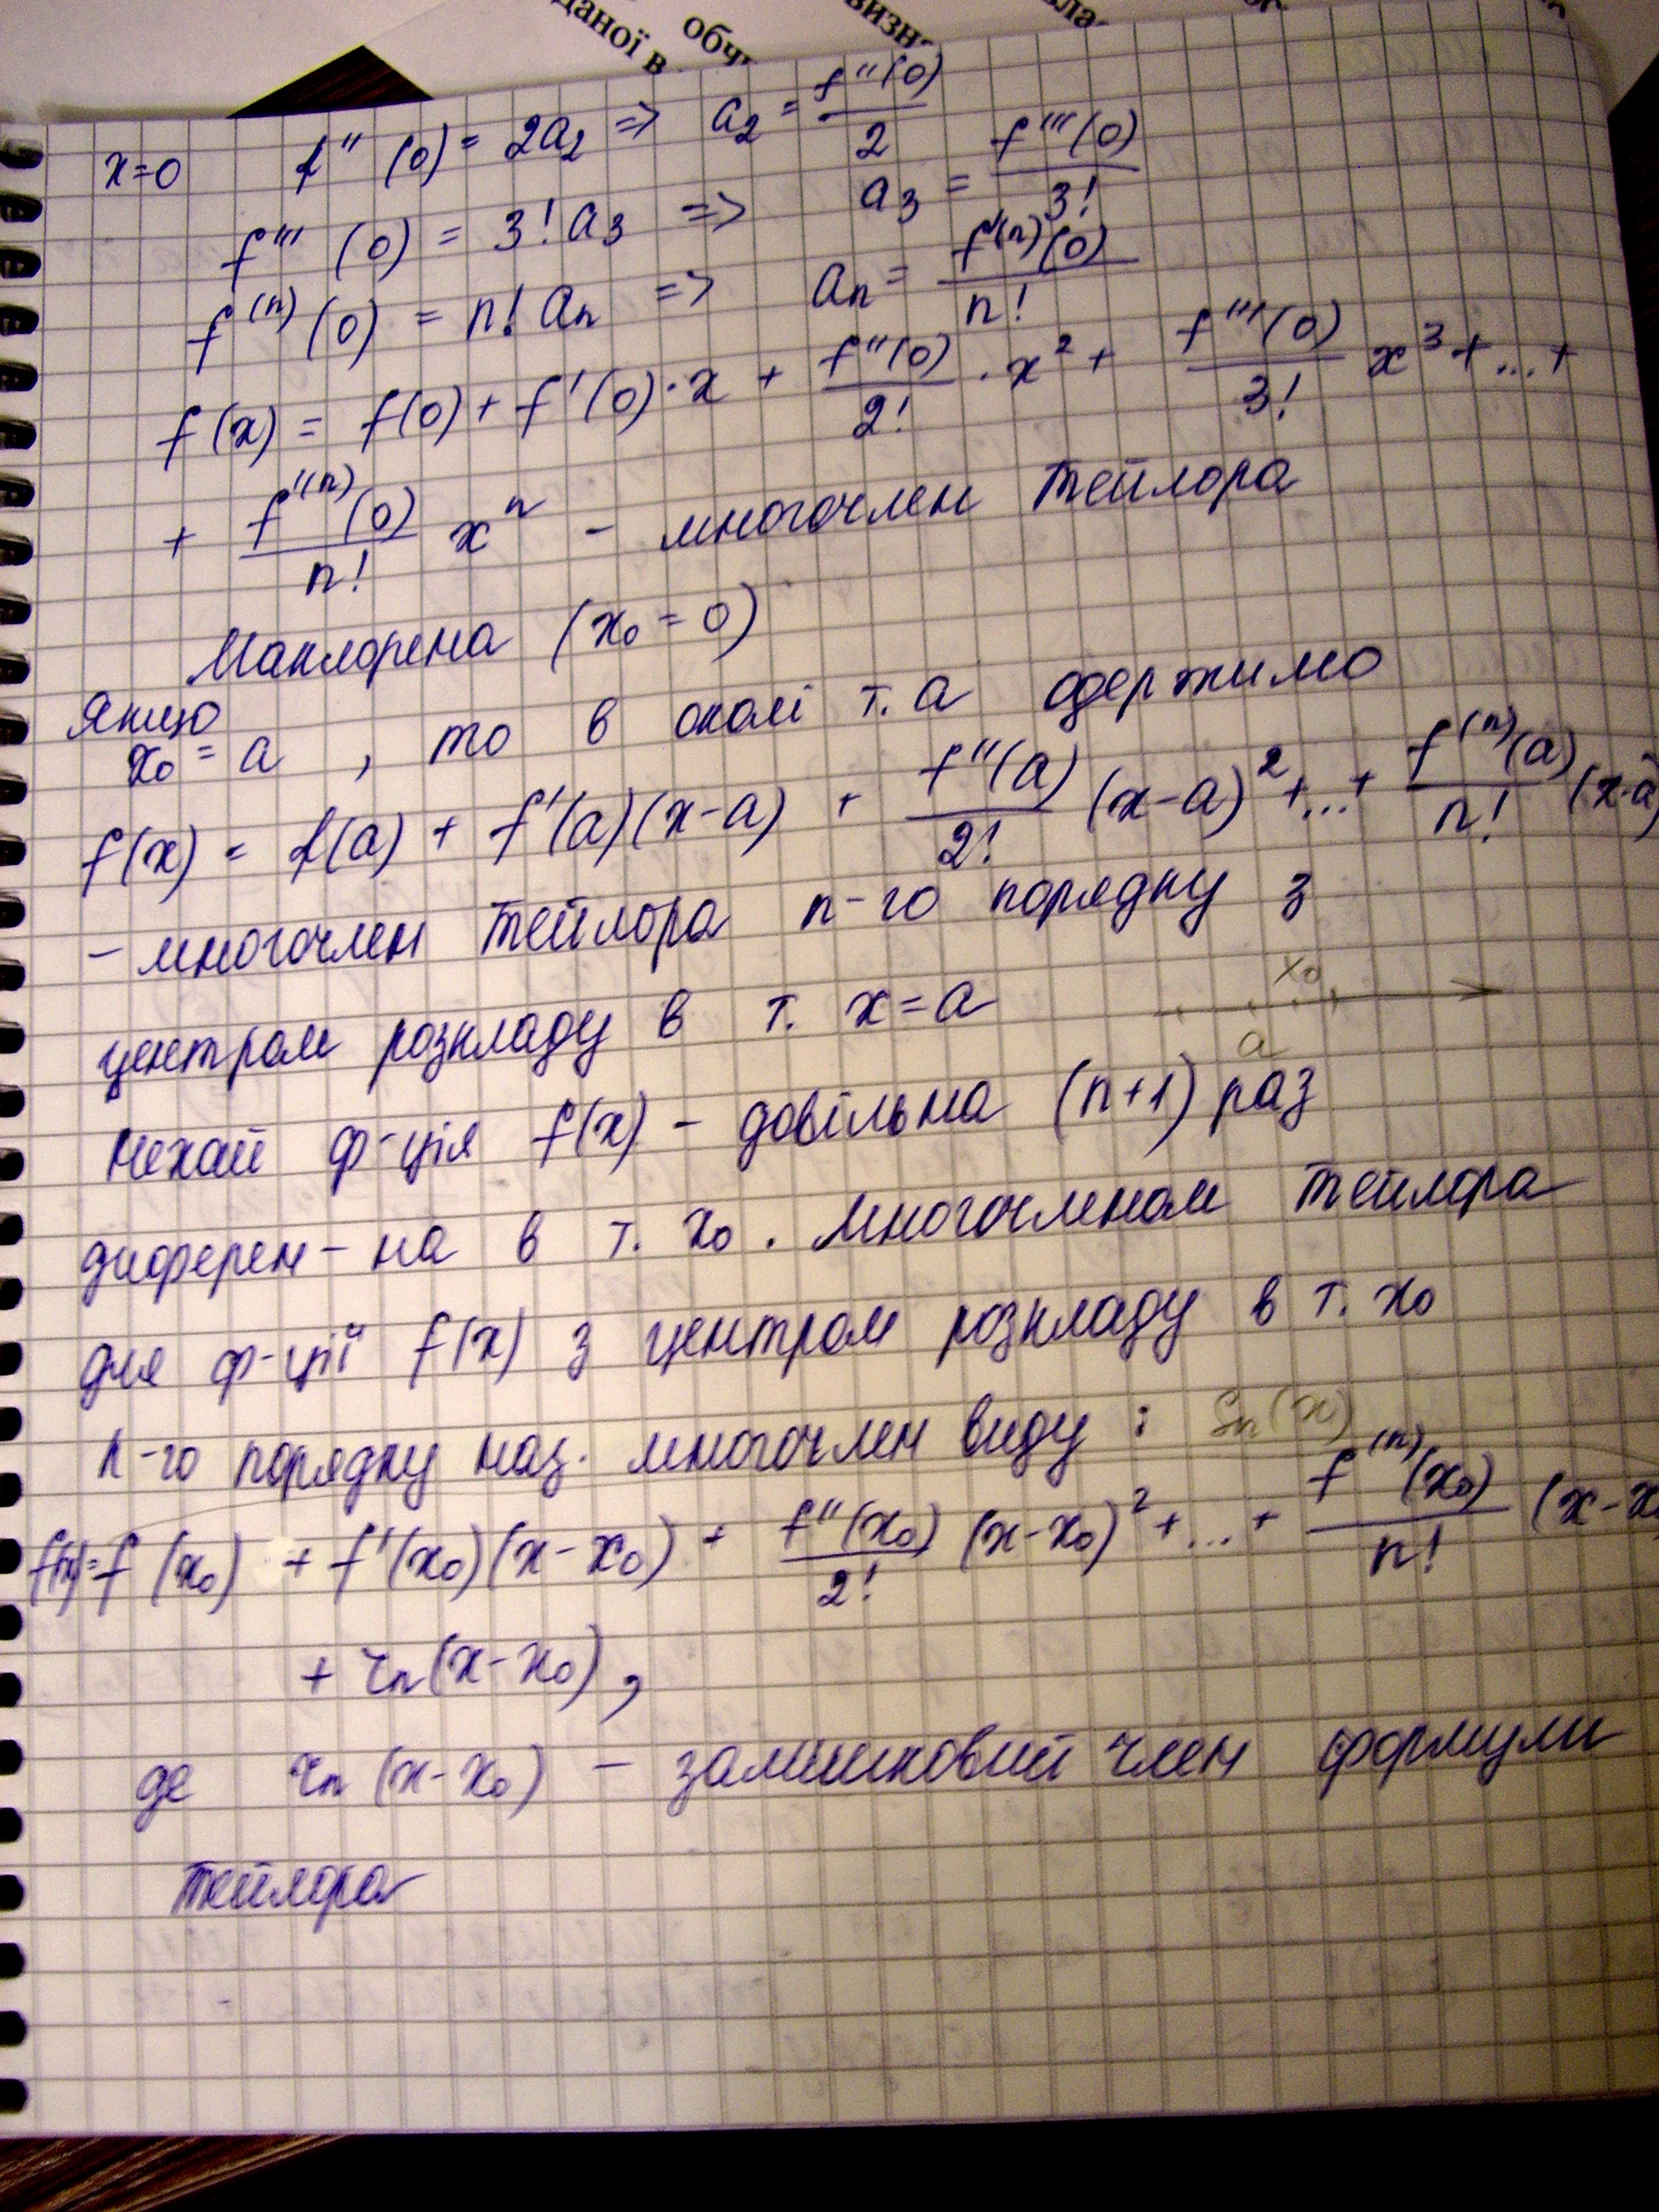 даної в
обч
визн
x=0 f''(0) = 2a₂ => a₂ = f''(0)/2
f'''(0) = 3! a₃ => a₃ = f'''(0)/3!
f⁽ⁿ⁾(0) = n! aₙ => aₙ = f⁽ⁿ⁾(0)/n!
f(x) = f(0) + f'(0)·x + f''(0)/2! · x² + f'''(0)/3! x³ + ... +
+ f⁽ⁿ⁾(0)/n! xⁿ - многочлен Тейлора
Маклорена (x₀ = 0)
Якщо
x₀ = a , то в околі т. a одержимо
f(x) = f(a) + f'(a)(x-a) + f''(a)/2! (x-a)² + ... + f⁽ⁿ⁾(a)/n! (x-a)
- многочлен Тейлора n-го порядку з
x₀
центром розкладу в т. x=a
a
Нехай ф-ція f(x) - довільна (n+1) раз
диферен-на в т. x₀. Многочленом Тейлора
для ф-ції f(x) з центром розкладу в т. x₀
n-го порядку наз. многочлен виду : Sₙ(x)
f(x)= f(x₀) + f'(x₀)(x-x₀) + f''(x₀)/2! (x-x₀)² + ... + f⁽ⁿ⁾(x₀)/n! (x-x
+ rₙ(x-x₀),
де rₙ(x-x₀) - залишковий член формули
Тейлора